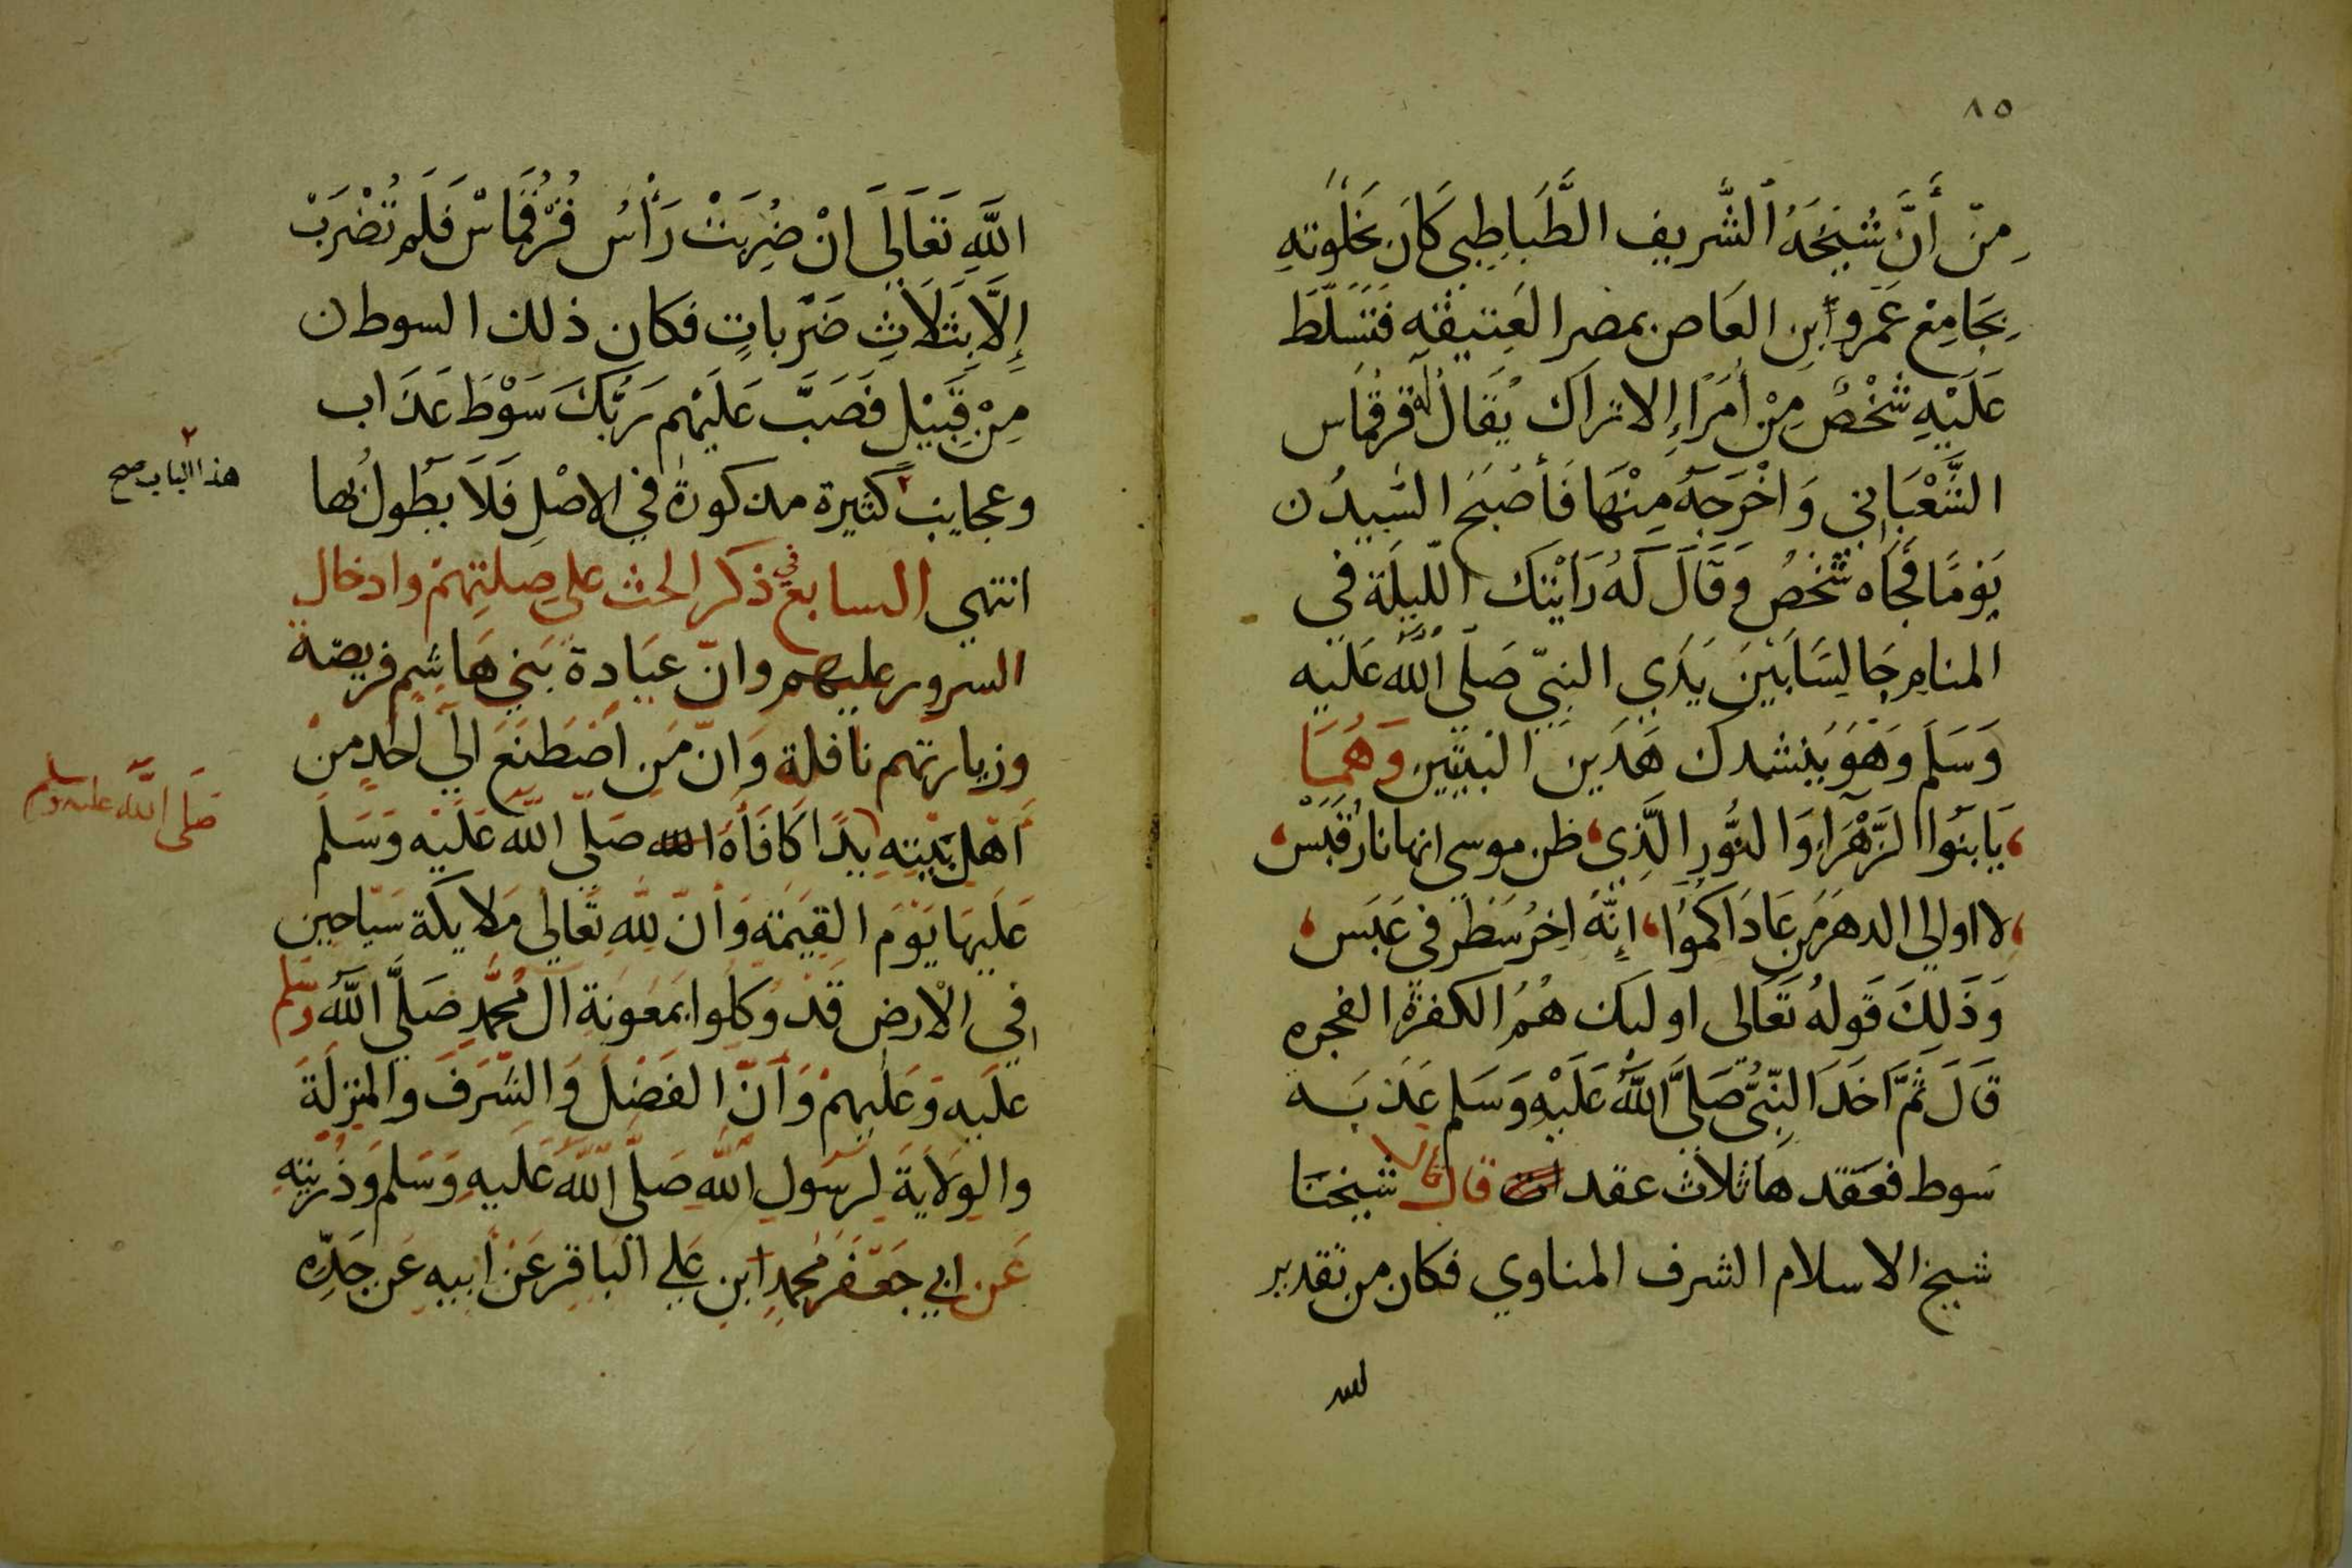 ٨٥
مِنّ أَنَّ شَيْخَهُ الشَّريف الطَّبَاطِبى كَانَ بخَلْوته
بِجَامِعْ عَمَرو ابن العَاص بمصر العَتيقه فتَسَلّطَ
عَلَيْهِ شَخْصٌ مِنْ أُمَرَاءِ الاتراك يُقَالُ لَهُ قرقماس
الشَّعْبَانى وَاخْرَجَهُ مِنْهَا فَأصْبَحَ السَّيدُ ن
يَوْمًا فَجَاه شَخصُ وَقَالَ لَهُ رَايْتك اللّيلَة فى
المنام جَالِسَا بَيْنَ يَدَي النبىّ صَلَّى اللهُ عَلَيه
وَسَلم وَهوَ يُنشدك هَذَين البيتين وَهُمَا
يَا بنُوا الزَّهْرَاءِ وَالنُّورِ الَّذِى ظن موسى انها نارُ قَبَسْ
لا اوالى الدهرَ مَن عَادَاكموُا إنَّهُ اخِرُ سَطر فى عَبَس
وَذَلِكَ قَولهُ تَعَالى اوليك هُمُ الكفرةُ الفجره
قَالَ ثمَّ اَخَذَ النِّبىُّ صَلىَّ اللّهُ عَلَيْهِ وَسَلم عَذَبَه
سَوط فعَقَدهَا ثلاث عقد ات قال قال شيخنَا
شيخ الاسلام الشرف المناوي فكان من تقدير
الله
اللّهِ تَعَالَى انْ ضُرِبَتْ رَأسُ قُرْقُمَاسْ فَلَم تُضْرَبْ
إِلَّا بِثلَاثِ ضَرْباتٍ فكان ذلك السوط ن
مِنْ قَبِيْلِ فَصَبَّ عَلَيْهم رَبُّكَ سَوْطَ عَذَاب
وعجايب كثيرة مذكورةٌ في الاصْلِ فَلَا نطُولُ بها
٢
هذا الباب صح
انتهي السابع في ذكر الحث على صِلتِهمْ وادخال
السرور عليهم وانّ عيَادة بَني هَاشم فريضة
وزيارتهم نافلة وَانّ مَن اصْطنَعَ الي احَدٍ منْ
اَهْل بَيْتهِ يدًا كَافَأهُ الله صَلّي اللّه عَلَيْه وَسَلّم
صَلى اللّه عليه وسلم
عَلَيهَا يَوْمَ القيَمَة وَأنّ لِلّه تَعَالي مَلايكَة سَيّاحين
في الْارض قدْ وُكلُوا بمَعُونة اَل مُحمَّدٍ صَلَّي اللّهُ وسلم
عَلَيه وَعَليهمْ وَاَنّ الفَضْل وَالشَّرَفَ والمنزلَةَ
والوِلَايَةَ لرَسُول اللّه صَلَّى اللّهُ عَليهِ وَسَلم وَذُريتهِ
عَن ابي جَعْفَر مُحمدٍ ابن عَلي البَاقِر عَنْ أبيهِ عَن جَدّهِ